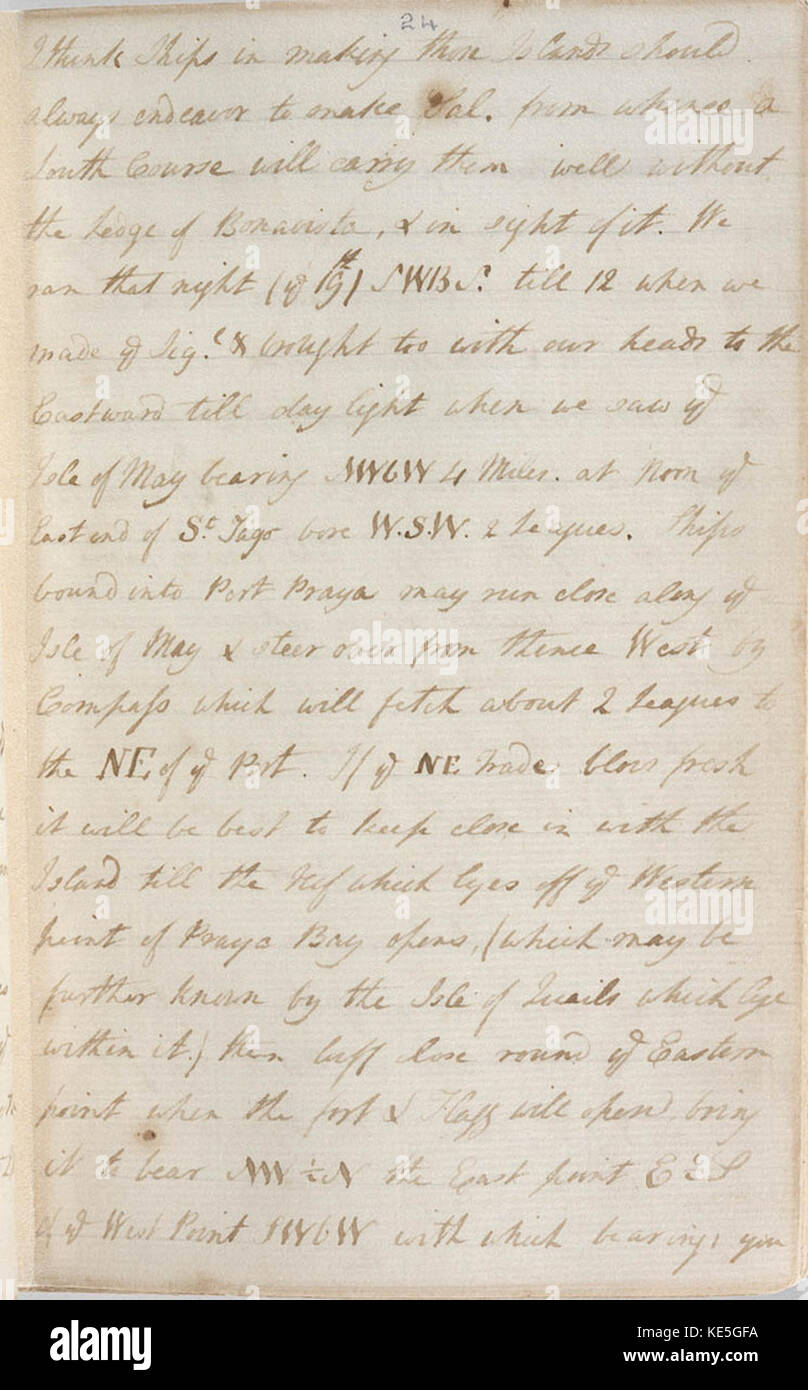 24
I think Ships in making those Islands should
always endeavor to make Sal. from whence a
South Course will carry them well without
the Ledge of Bonavista, & in sight of it. We
ran that night (yᵉ 19th) SWBS. till 12 when we
made yᵉ Sigˡ & brought too with our heads to the
Eastward till day light when we saw yᵉ
Isle of May bearing NWbW 4 Miles. at Noon yᵉ
East end of Sᵗ Jago bore W.S.W. 2 Leagues. Ships
bound into Port Praya may run close along yᵉ
Isle of May & steer over from thence West by
Compass which will fetch about 2 Leagues to
the NE of yᵉ Port. If yᵉ NE Trade blows fresh
it will be best to keep close in with the
Island till the Reef which Lyes off yᵉ Western
point of Praya Bay opens, (which may be
further known by the Isle of Quails which Lye
within it.) then luff close round yᵉ Eastern
point when the fort & Flagg will open bring
it to bear NW ½ N the East point E
yᵉ West Point SWbW with which bearings you
alamy
Image ID: KE5GFA
www.alamy.com